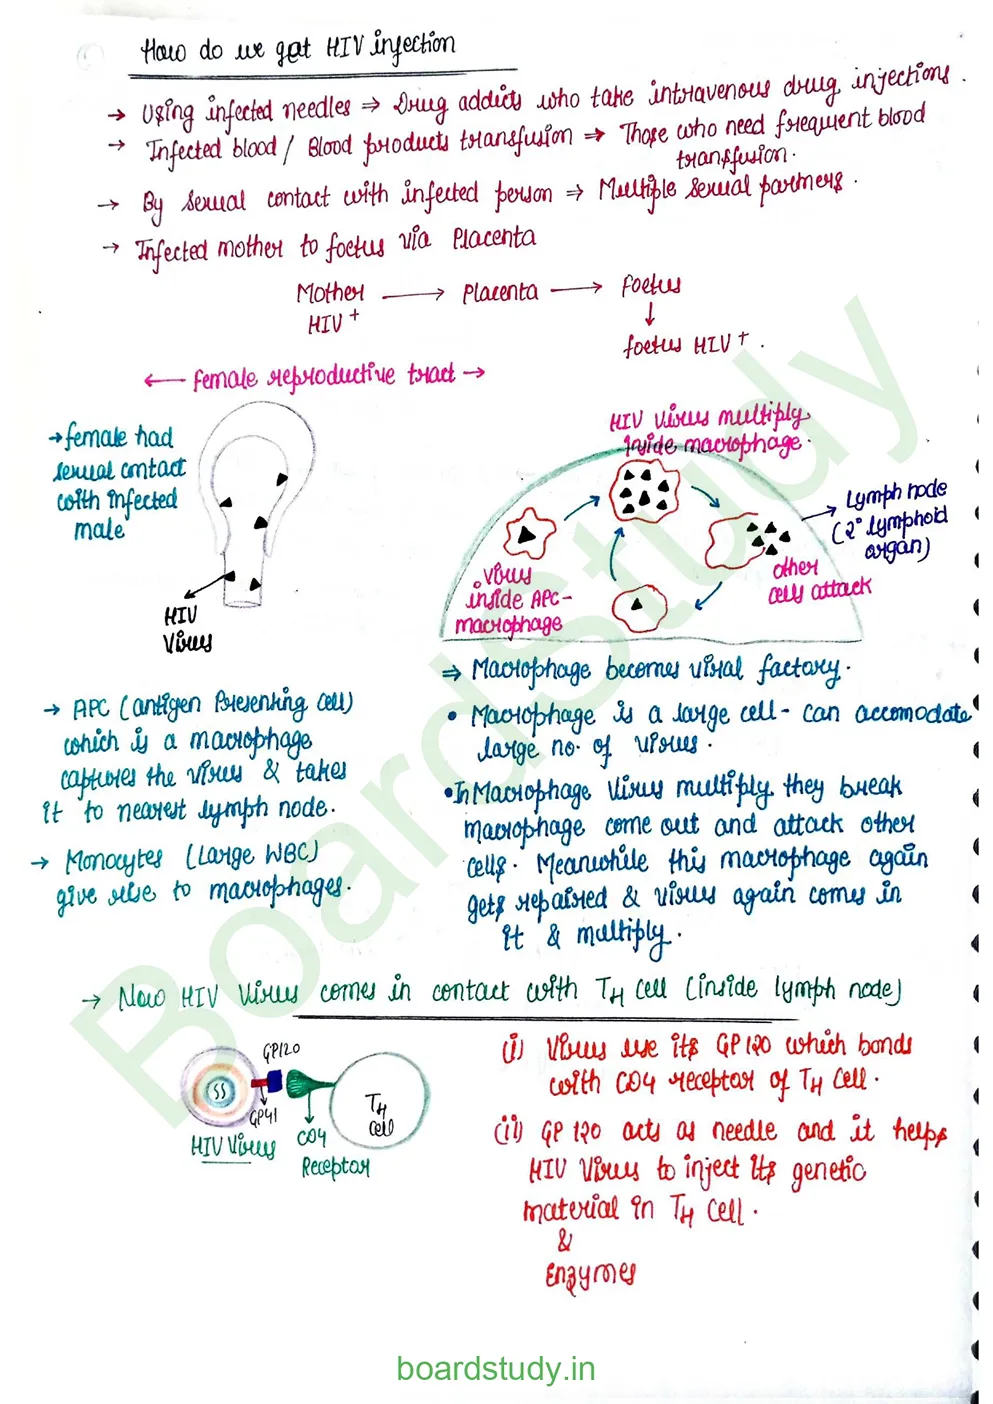 How do we get HIV infection
→ Using infected needles ⇒ Drug addicts who take intravenous drug injections.
→ Infected blood / Blood products transfusion ⇒ Those who need frequent blood
transfusion.
→ By sexual contact with infected person ⇒ Multiple sexual partners.
→ Infected mother to foetus via Placenta
Mother → Placenta → foetus
HIV+
↓
foetus HIV+.
← female reproductive tract →
→ female had
sexual contact
with infected
male
HIV
Virus
HIV virus multiply
inside macrophage.
Lymph node
(2° lymphoid
organ)
other
cells attack
.virus
inside APC-
macrophage
→ APC (antigen Presenting cell)
which is a macrophage
captures the virus & takes
it to nearest lymph node.
→ Monocytes (Large WBC)
give rise to macrophages.
⇒ Macrophage becomes viral factory.
• Macrophage is a large cell - can accomodate
large no. of virus.
• In Macrophage virus multiply they break
macrophage come out and attack other
cells. Meanwhile this macrophage again
gets repaired & virus again comes in
it & multiply.
→ Now HIV Virus comes in contact with TH cell (inside lymph node)
GP120
SS
GP41
HIV Virus
CD4
Receptor
TH
cell
(i) Virus use its GP120 which bonds
with CD4 receptor of TH cell.
(ii) GP 120 acts as needle and it helps
HIV Virus to inject its genetic
material in TH cell.
&
Enzymes
BoardStudy
boardstudy.in